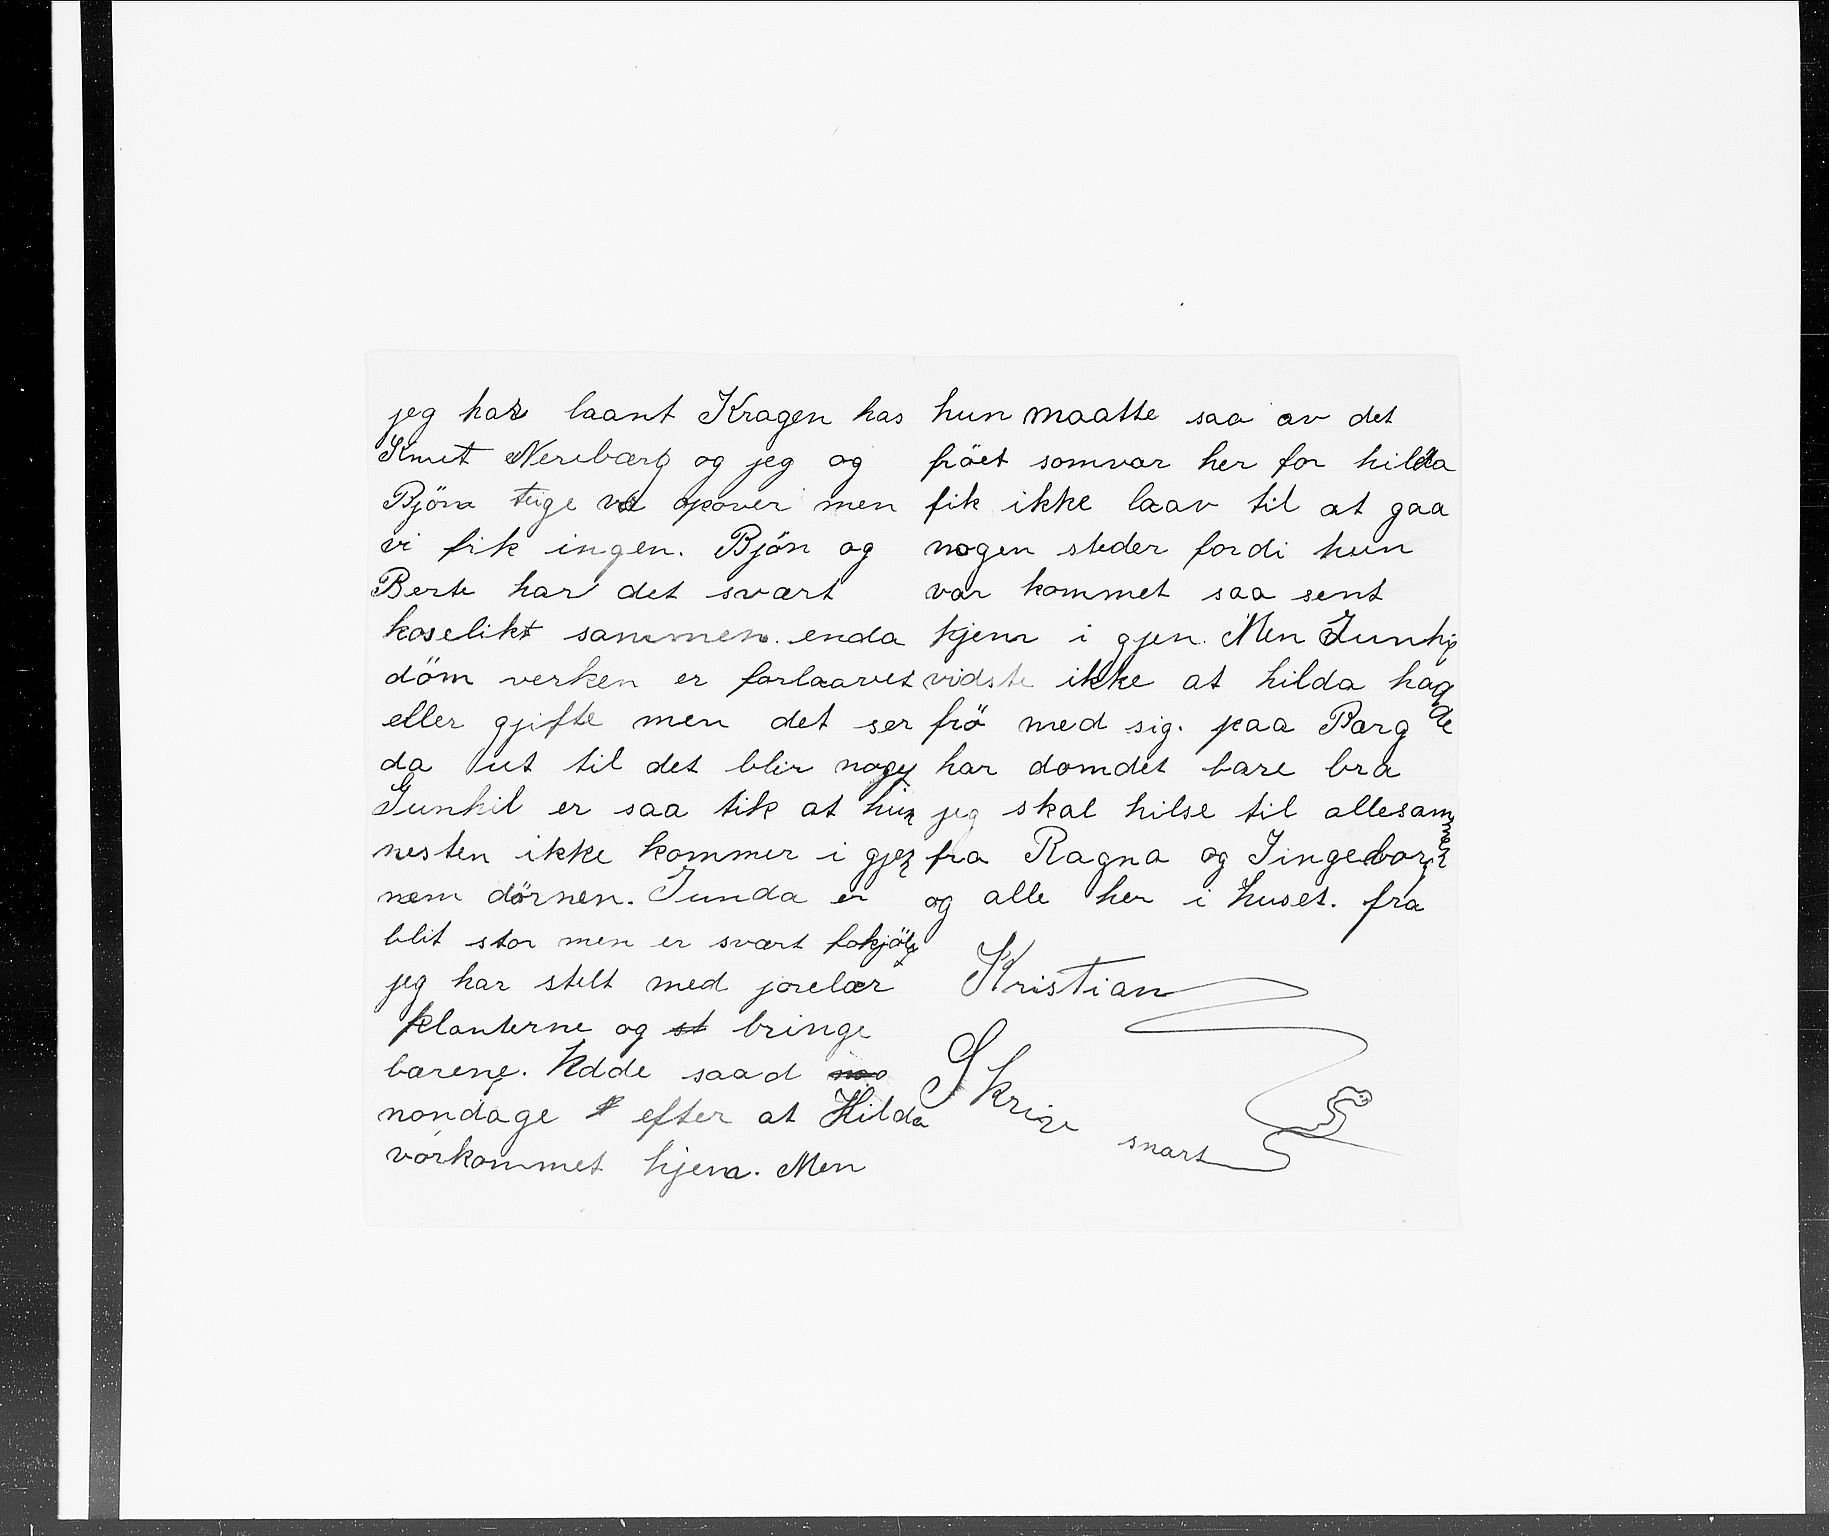 jeg har laant Kragen has
Knut Nerebærg og jeg og
Bjöm teige va opover men
vi fik ingen. Bjön og
Berte har det svært
koselikt sammen enda
döm verken er forlaavet
eller gjifte men det ser
da ut til det blir noge
Gunhil er saa tik at hun
nesten ikke kommer i gjen
nem dørnen. Gunda er
blit stor men er svært fokjölt
jeg har stelt med jorelær
planterne og st bringe
bærene. Udde saad
nondage efter at Hilda
vórkommet hjem. Men
hun maatte saa av det
fröet somvar her for hilda
fik ikke laav til at gaa
nogen steder fordi hun
var kommet saa sent
hjem i gjen. Men Gunhil
vidste ikke at hilda hagde
frö med sig. paa Barg
har domdet bare bra
jeg skal hilse til allesammen
fra Ragna og Jingeborg
og alle her i huset. fra
Kristian
Skriv snart